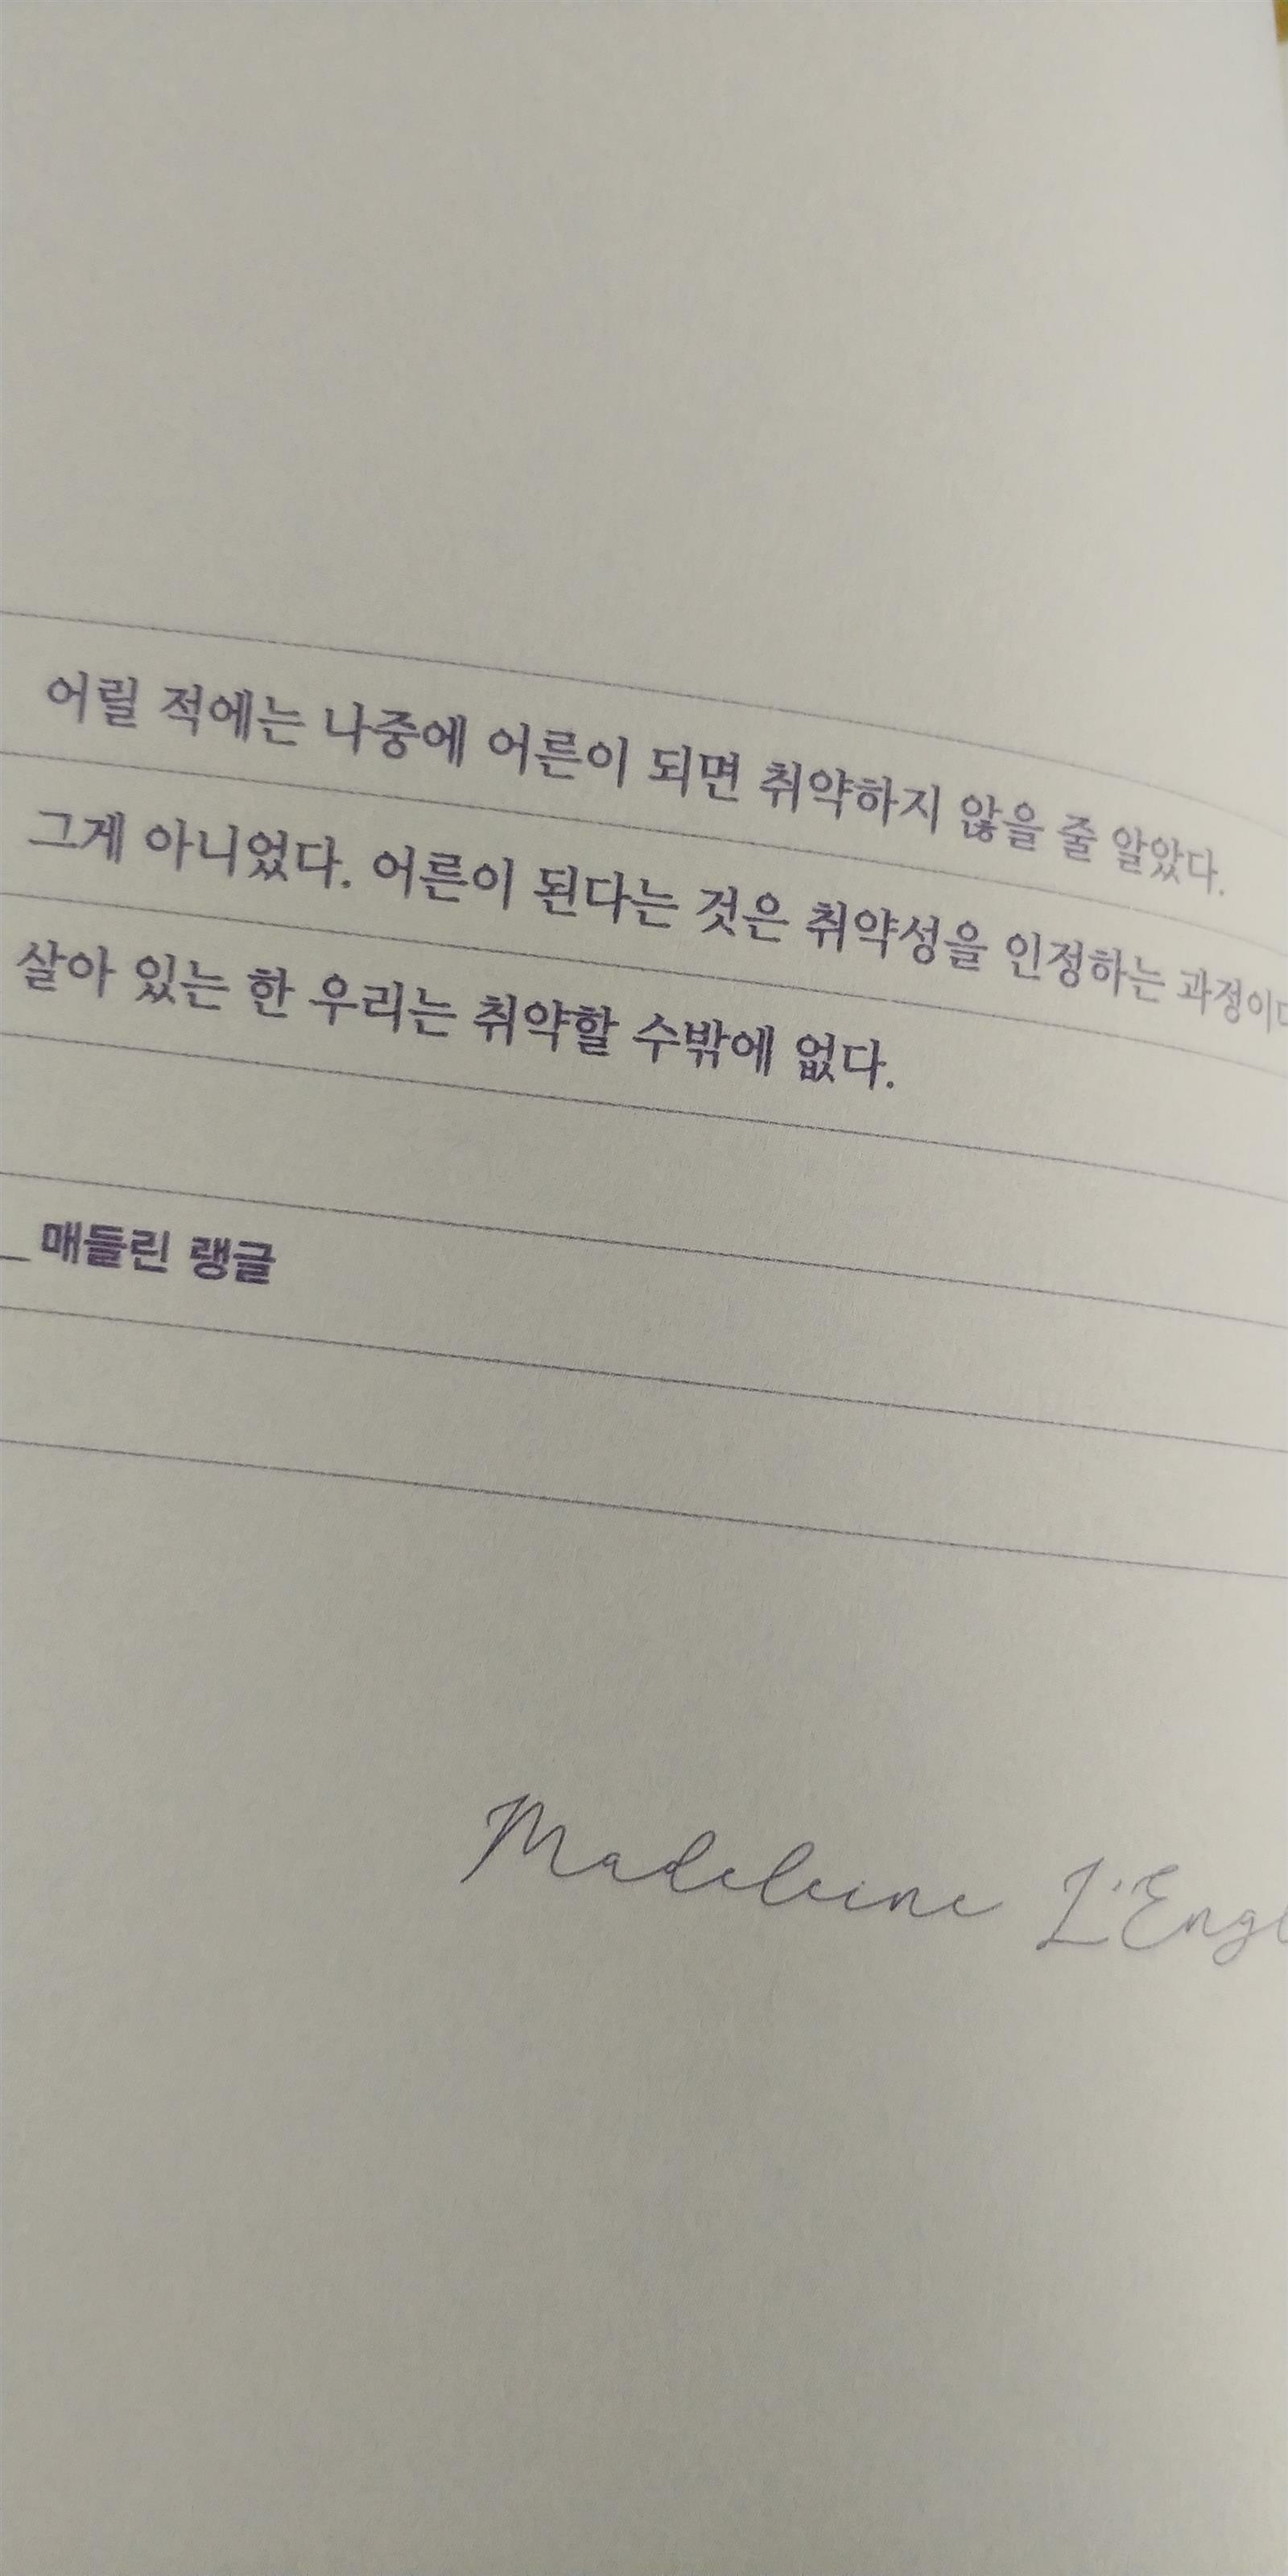 어릴 적에는 나중에 어른이 되면 취약하지 않을 줄 알았다.
그게 아니었다. 어른이 된다는 것은 취약성을 인정하는 과정이다
살아 있는 한 우리는 취약할 수밖에 없다.
_ 매들린 랭글
Madeleine L'Engl